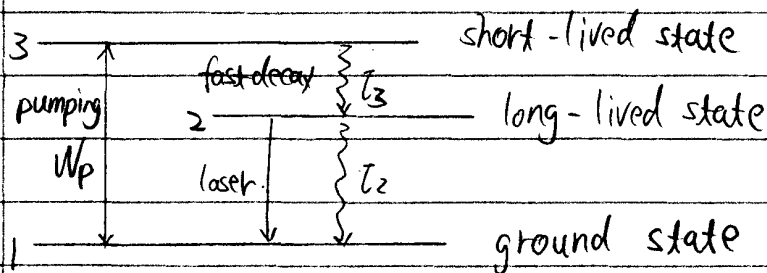 3 short-lived state
fast decay τ3
pumping 2 long-lived state
Wp laser. τ2
1 ground state